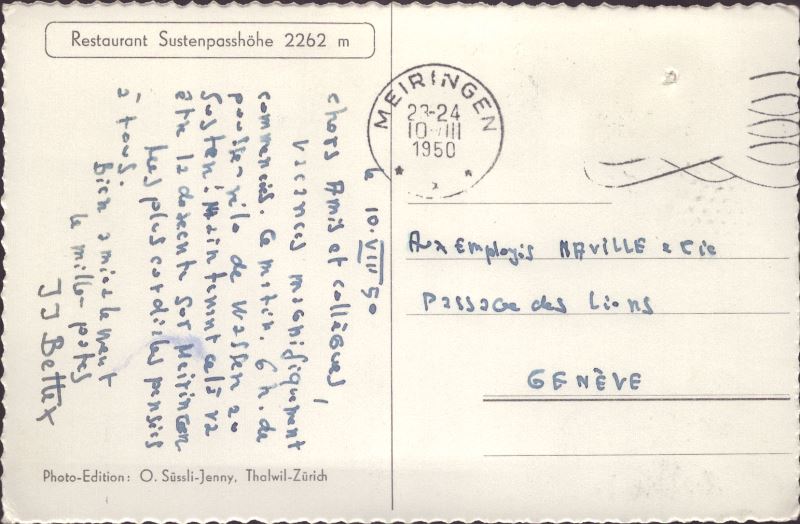 Restaurant Sustenpasshöhe 2262 m
le 10.VIII 50
chers Amis et collègues,
Vacances magnifiquement
commencées. Ce matin. 6 h. de
pousse-vélo de Wassen au
Susten! Maintenant cela va
être la descente sur Meiringen
Mes plus cordiales pensées
à tous.
Bien amicalement
le mille-pattes
JJ Bettex
Photo-Edition: O. Süssli-Jenny, Thalwil-Zürich
MEIRINGEN
23-24
10 VIII
1950
Aux Employés NAVILLE & Cie
Passage des Lions
GENÈVE